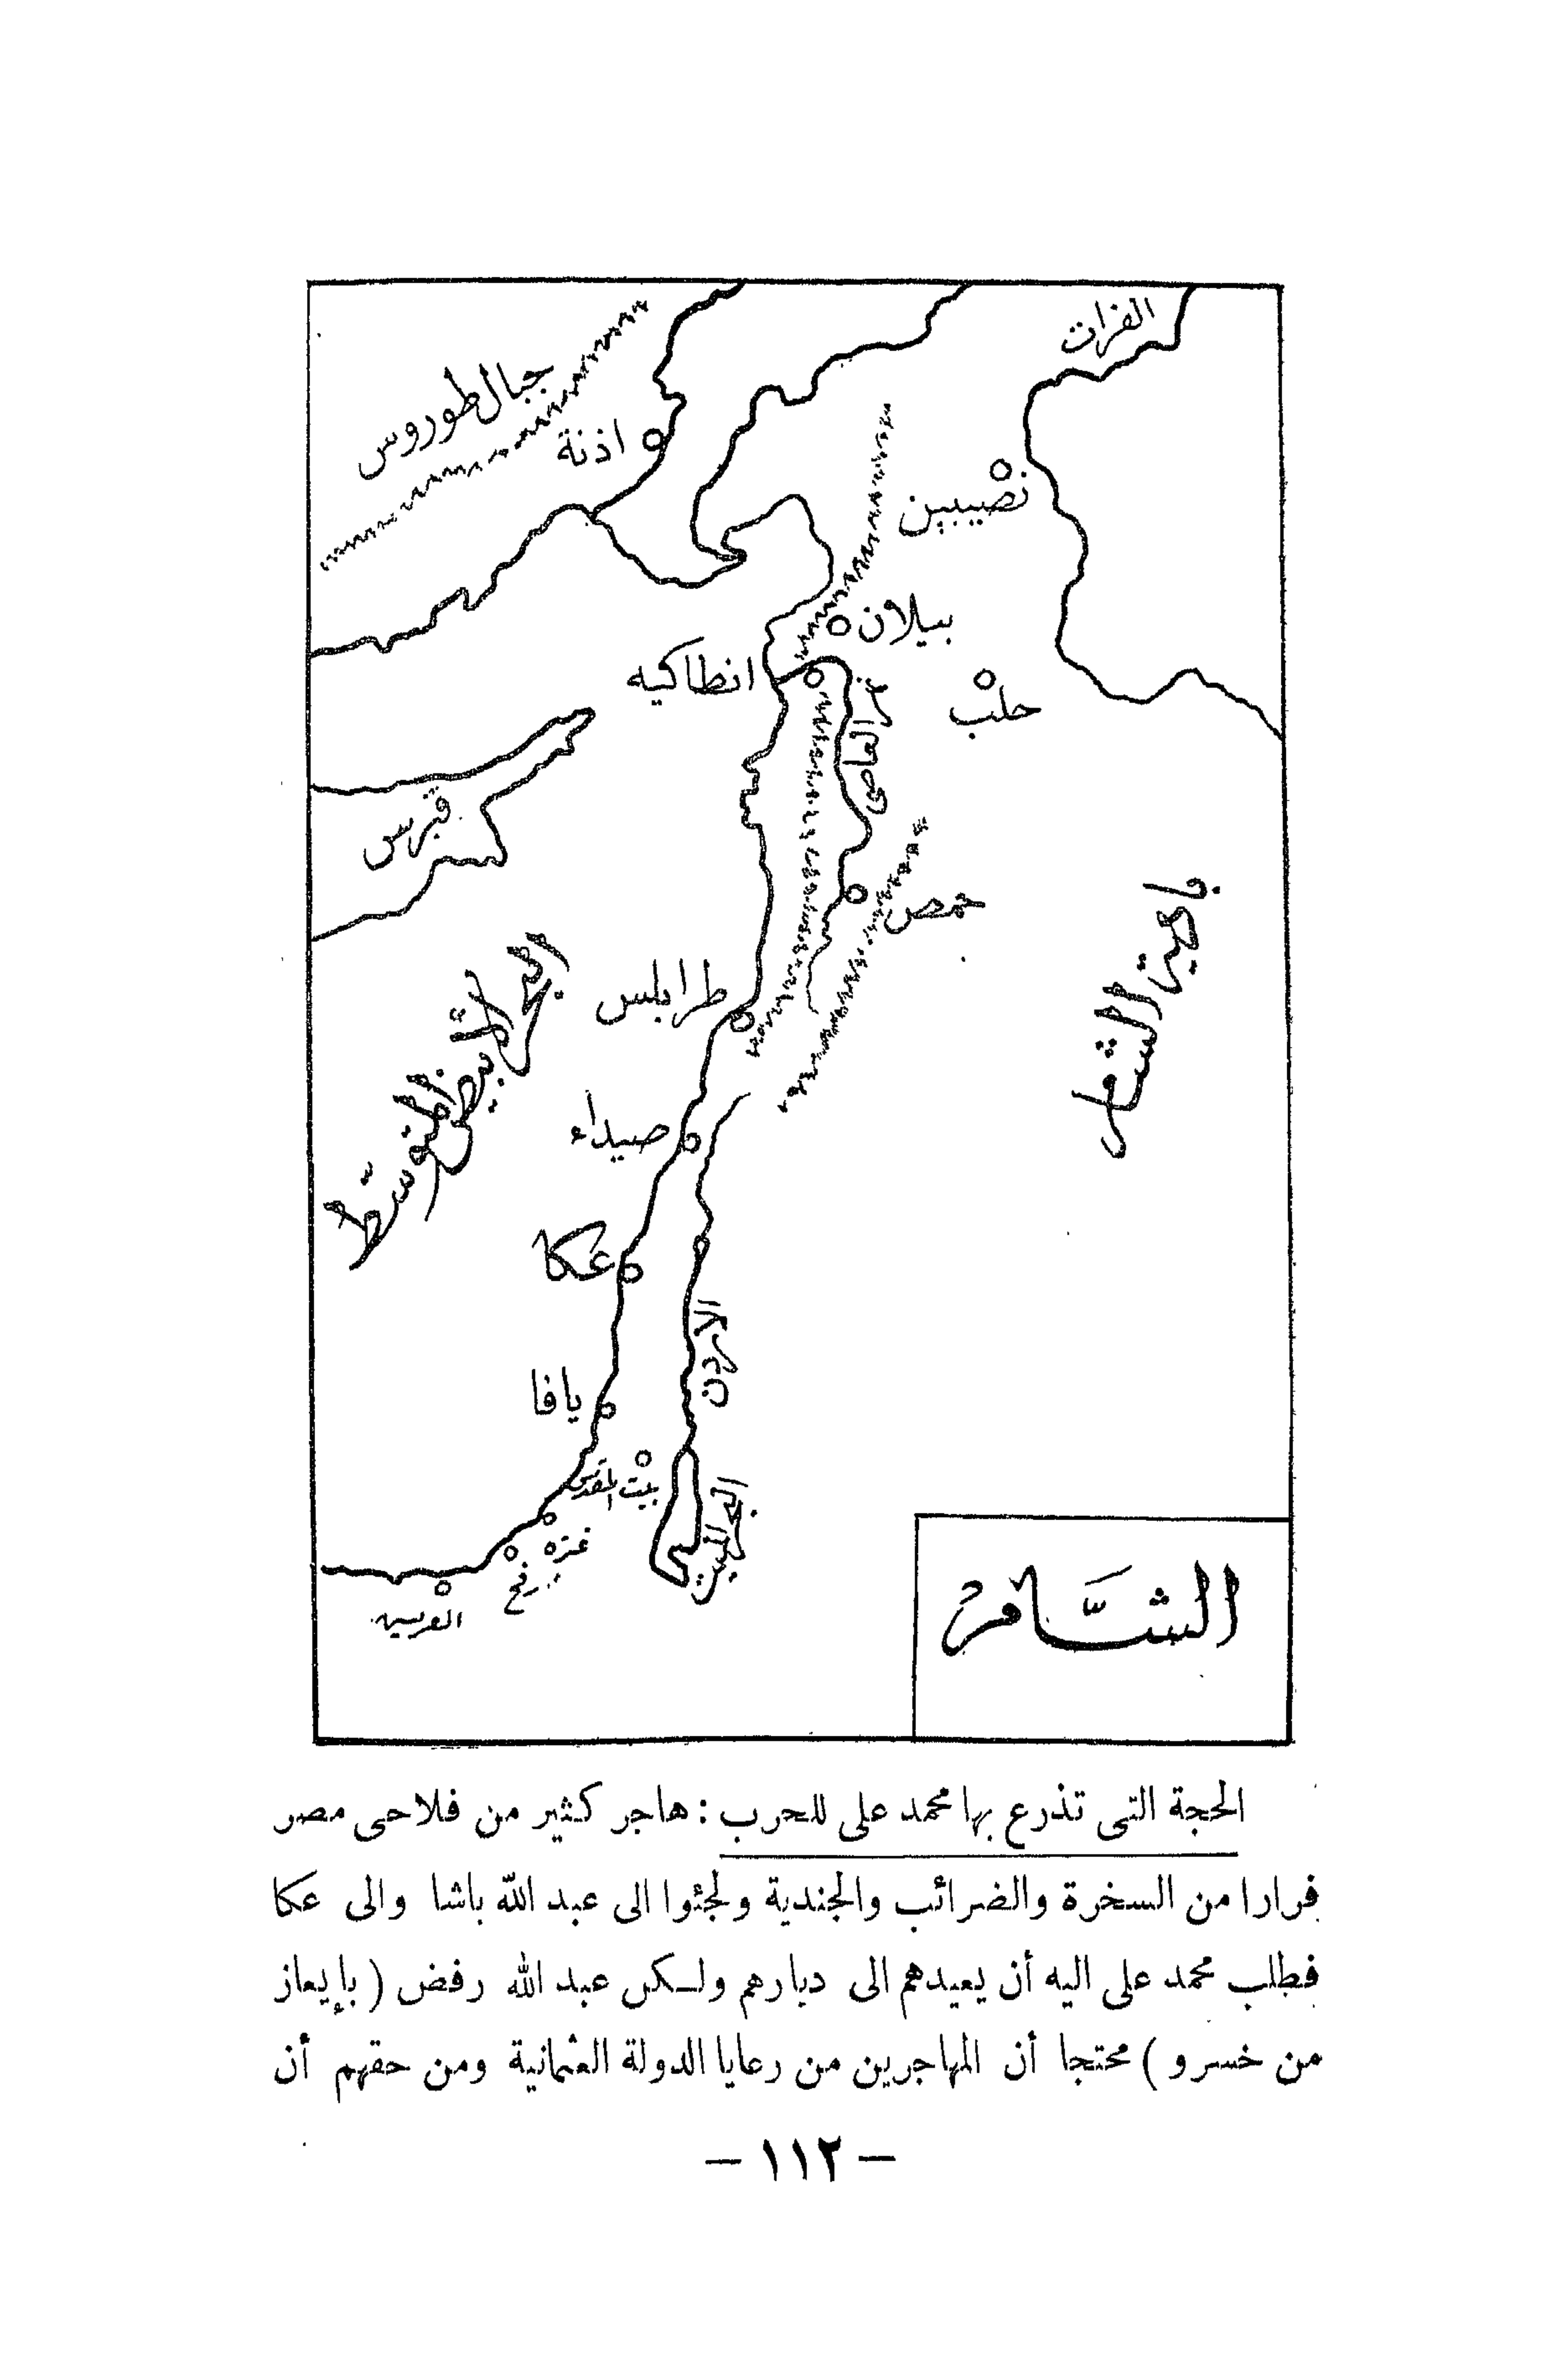 الفرات
جبال طوروس
اذنة
نصيبين
بيلان
انطاكيه
حلب
نهر العاصى
قبرس
حمص
بادية الشام
البحر الأبيض المتوسّط
طرابلس
صيداء
عكا
الاردن
يافا
بيت المقدس
البحر الميت
غزه
رفح
العريش
الشَّام
الحجة التى تذرع بها محمد على للحرب : هاجر كثير من فلاحى مصر
فرارا من السخرة والضرائب والجندية ولجئوا الى عبد الله باشا والى عكا
فطلب محمد على اليه أن يعيدهم الى ديارهم ولكن عبد الله رفض ( بإيعاز
من خسرو ) محتجا أن المهاجرين من رعايا الدولة العثمانية ومن حقهم أن
— ١١٢ —